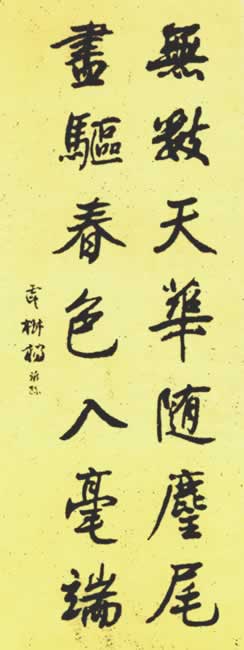 無數天華随麈尾
盡驅春色入毫端